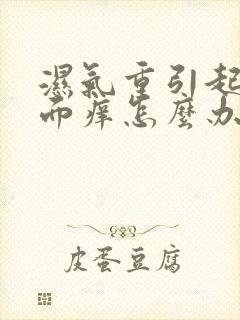 濕氣重引起
而痒怎麼办
皮蛋豆腐